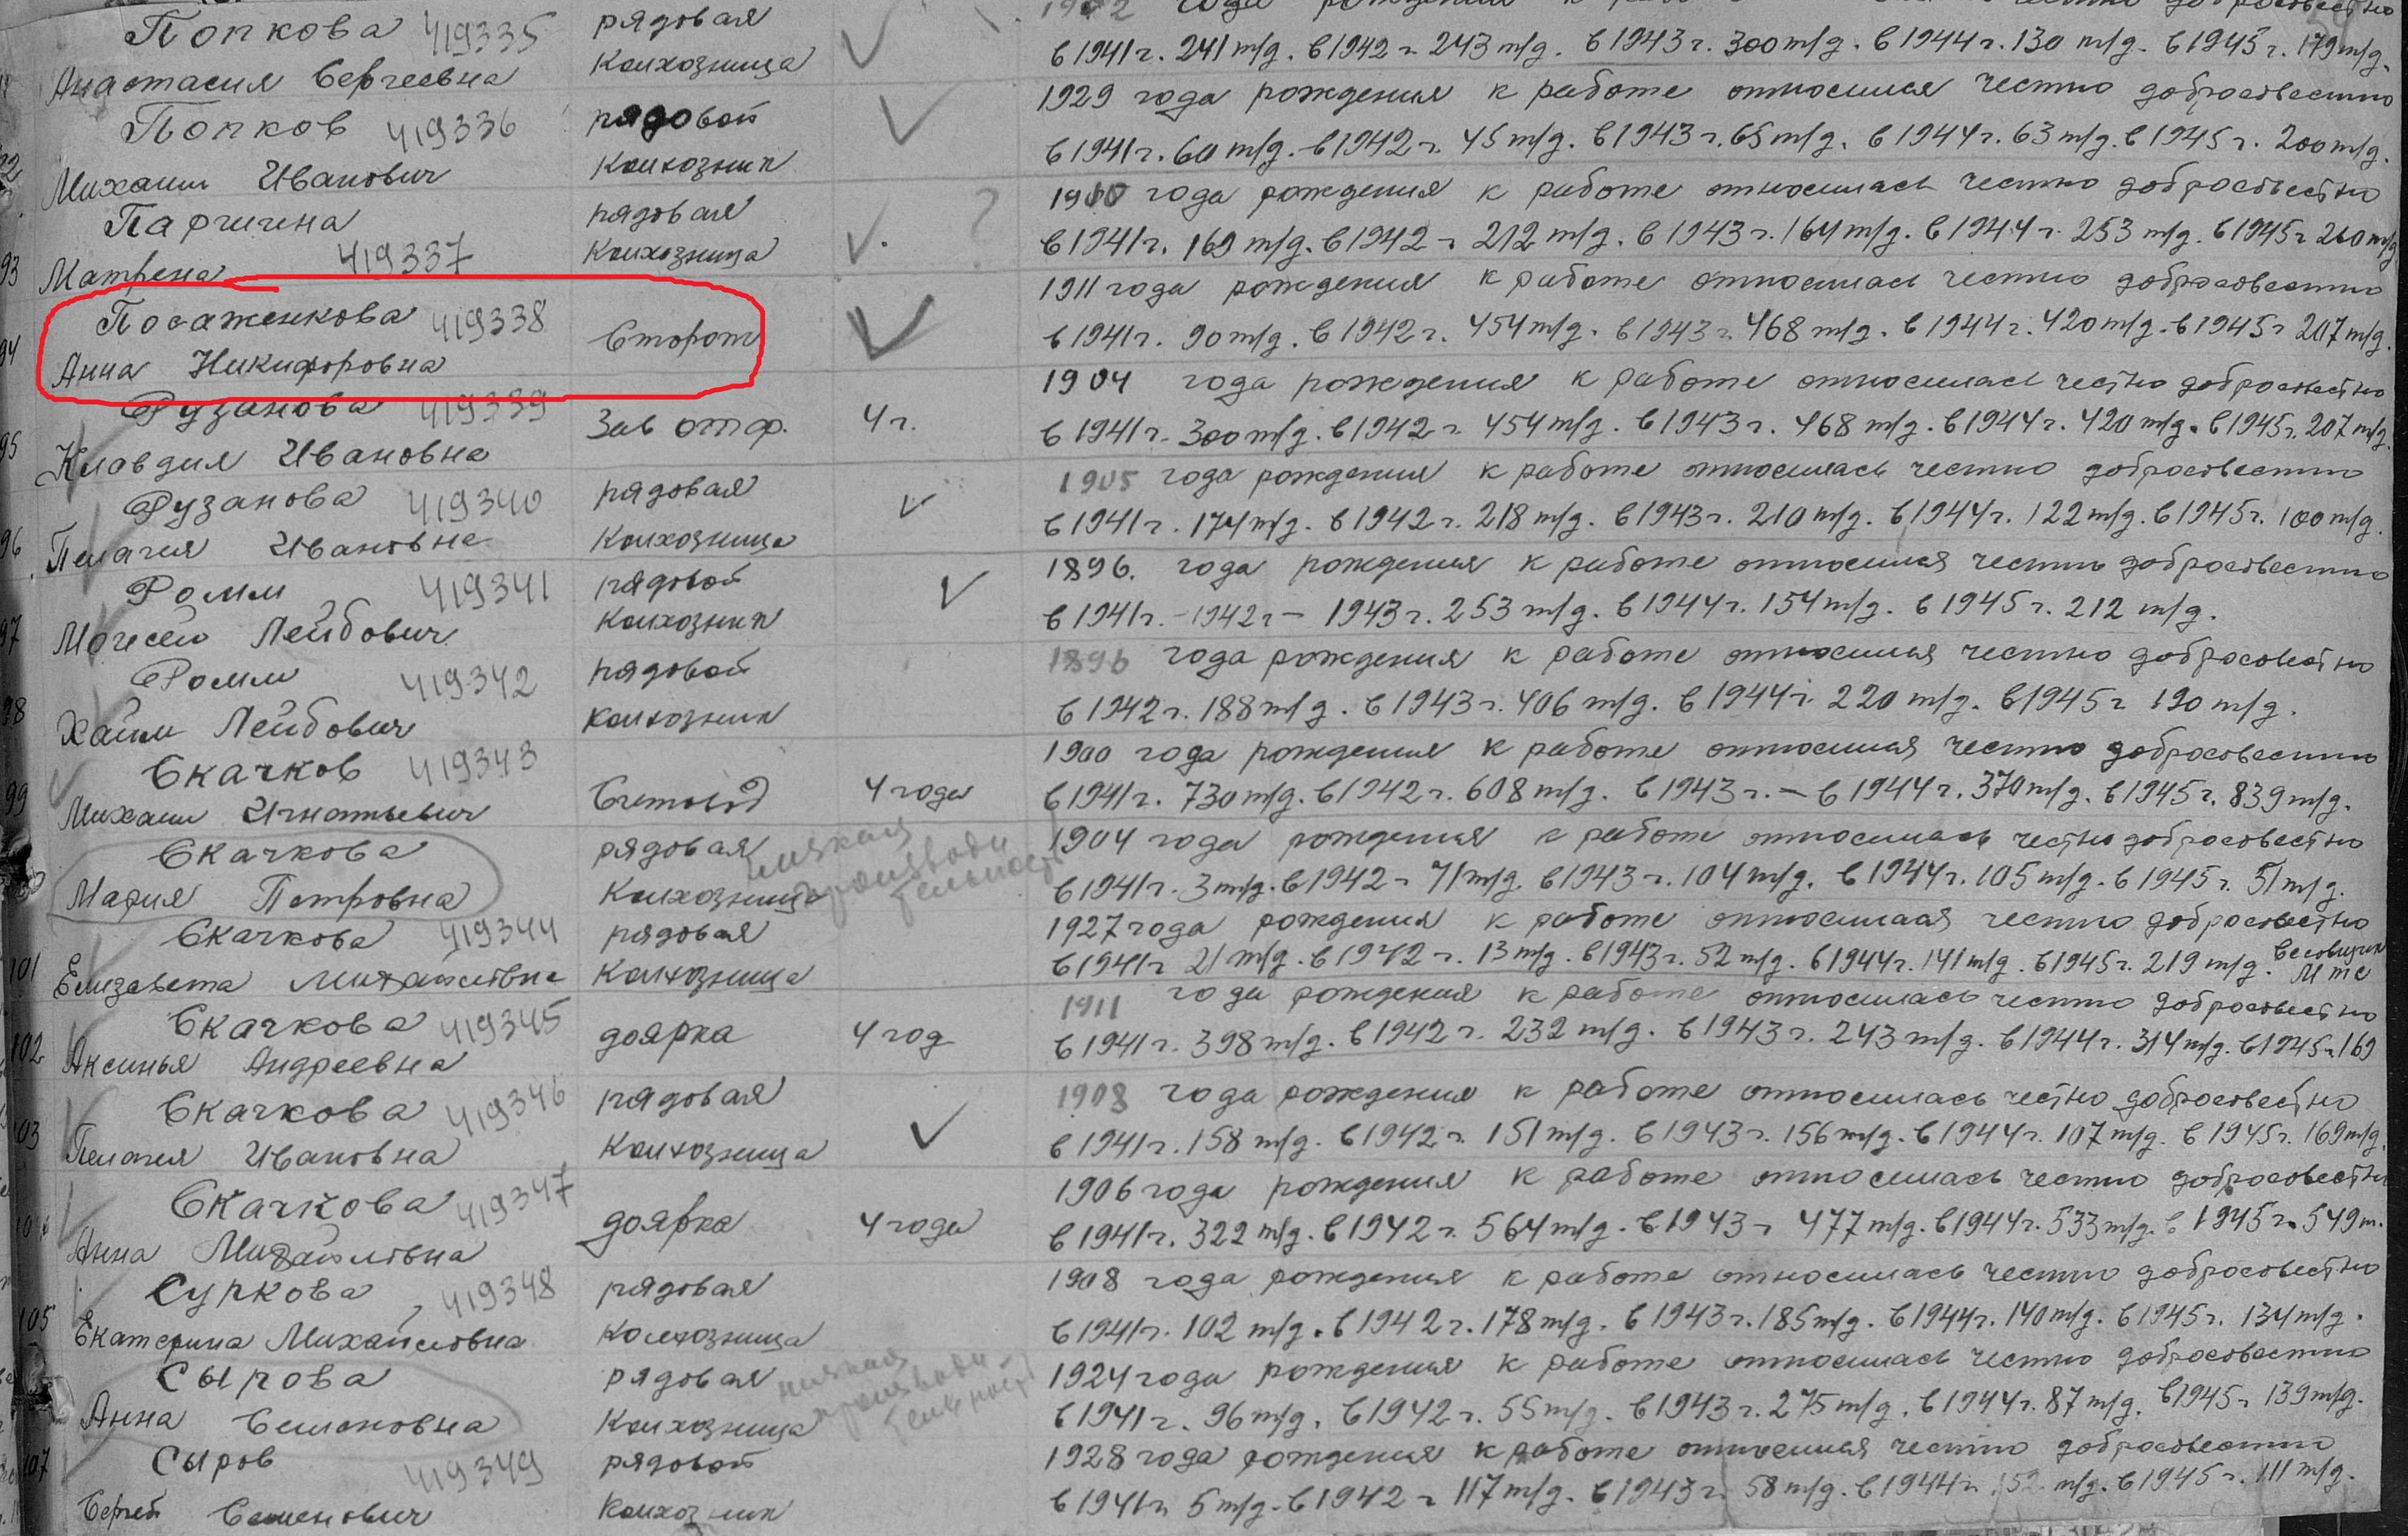 года рождения к работе честно добросовестно
Попкова 419335 рядовая
в 1941 г. 241 т/д. в 1942 г. 243 т/д. в 1943 г. 300 т/д. в 1944 г. 130 т/д. в 1945 г. 179 т/д.
Анастасия Сергеевна колхозница
1929 года рождения к работе относился честно добросовестно
Попков 419336 рядовой
в 1941 г. 60 т/д. в 1942 г. 45 т/д. в 1943 г. 65 т/д. в 1944 г. 63 т/д. в 1945 г. 200 т/д.
Михаил Иванович колхозник
1900 года рождения к работе относилась честно добросовестно
рядовая ?
93 Матрена 419337 колхозница
в 1941 г. 169 т/д. в 1942 г 212 т/д. в 1943 г. 164 т/д. в 1944 г. 253 т/д. в 1945 г 260 т/д
1911 года рождения к работе относилась честно добросовестно
Посаженкова 419338 Сторож
94 Анна Никифоровна
в 1941 г. 90 т/д. в 1942 г. 454 т/д. в 1943 г 468 т/д. в 1944 г. 420 т/д. в 1945 г 207 т/д.
1904 года рождения к работе относилась честно добросовестно
Рузанова 419339 Зав отф. 4 г.
95 Клавдия Ивановна
в 1941 г. 300 т/д. в 1942 г. 454 т/д. в 1943 г. 468 т/д. в 1944 г. 420 т/д. в 1945 г. 207 т/д.
1905 года рождения к работе относилась честно добросовестно
Рузанова 419340 рядовая
96 Пелагия Ивановна колхозница
в 1941 г. 174 т/д. в 1942 г. 218 т/д. в 1943 г. 210 т/д. в 1944 г. 122 т/д. в 1945 г. 100 т/д.
1896. года рождения к работе относился честно добросовестно
Ромм 419341 рядовой
97 Моисей Лейбович колхозник
в 1941 г. - 1942 г - 1943 г. 253 т/д. в 1944 г. 154 т/д. в 1945 г. 212 т/д.
1896 года рождения к работе относился честно добросовестно
Ромм 419342 рядовой
98 Хаим Лейбович колхозник
в 1942 г. 188 т/д. в 1943 г. 406 т/д. в 1944 г. 220 т/д. в 1945 г 190 т/д.
1900 года рождения к работе относился честно добросовестно
Скачков 419343 Счетовод 4 года
99 Михаил Игнатьевич
в 1941 г. 730 т/д. в 1942 г. 608 т/д. в 1943 г. - в 1944 г. 370 т/д. в 1945 г. 839 т/д.
1904 года рождения к работе относилась честно добросовестно
Скачкова рядовая низкая
Мария Петровна колхозница производи
тельность
в 1941 г. 3 т/д. в 1942 г 71 т/д. в 1943 г. 104 т/д. в 1944 г. 105 т/д. в 1945 г. 51 т/д.
1927 года рождения к работе честно добросовестно
Скачкова 419344 рядовая
101 Елизавета Михайловна колхозница
в 1941 г 21 т/д. в 1942 г. 13 т/д. в 1943 г. 52 т/д. в 1944 г. 141 т/д. в 1945 г. 219 т/д. весовщик
МТС
1911 года рождения к работе относилась честно добросовестно
Скачкова 419345 доярка 4 год
102 Аксинья Андреевна
в 1941 г. 398 т/д. в 1942 г. 232 т/д. в 1943 г. 243 т/д. в 1944 г. 314 т/д. в 1945 г 169
1908 года рождения к работе относилась честно добросовестно
Скачкова 419346 рядовая
103 Пелагея Ивановна колхозница
в 1941 г. 158 т/д. в 1942 г. 151 т/д. в 1943 г. 156 т/д. в 1944 г. 107 т/д. в 1945 г. 169 т/д.
1906 года рождения к работе относилась честно добросовестно
Скачкова 419347 доярка 4 года
Анна Михайловна
в 1941 г. 322 т/д. в 1942 г. 564 т/д. в 1943 г 477 т/д. в 1944 г. 533 т/д. в 1945 г. 549 т.
1908 года рождения к работе относилась честно добросовестно
Суркова 419348 рядовая
105 Екатерина Михайловна колхозница
в 1941 г. 102 т/д. в 1942 г. 178 т/д. в 1943 г. 185 т/д. в 1944 г. 140 т/д. в 1945 г. 134 т/д.
1924 года рождения к работе относилась честно добросовестно
Сырова рядовая низкая
Анна Семеновна колхозница производи-
тельность
в 1941 г. 96 т/д. в 1942 г. 55 т/д. в 1943 г. 275 т/д. в 1944 г. 87 т/д. в 1945 г. 139 т/д.
1928 года рождения к работе относился честно добросовестно
107 Сыров 419349 рядовой
Сергей Семенович колхозник
в 1941 г. 5 т/д. в 1942 г 117 т/д. в 1943 г. 58 т/д. в 1944 г. 152 т/д. в 1945 г. 111 т/д.